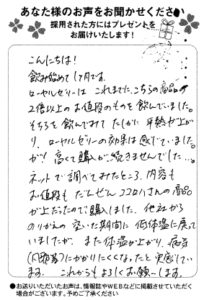 あなた様のお声をお聞かせください
採用された方にはプレゼントを
お届けいたします！
こんにちは！
飲み始めて1ヶ月です。
ローヤルゼリーは これまで、こちらの商品の
2倍以上のお値段のものを飲んでいました。
そちらを飲んでみて たしかに 平熱が上が
り、ローヤルゼリーの効果は感じていました
が、高くて購入が続きませんでした…。
ネットで調べてみたところ、内容も
お値段も だんぜん ココロハさんの商品
が上だったので購入しました。他社から
のりかえの 空いた期間に 低体温に戻って
いましたが、また体温が上がり、病気
にかかりにくくなったと実感してい
ます。 これからもよろしくお願いします。
●お送りいただいたお声は、情報誌やWEBなどに掲載させていただく
場合がございます。予めご了承ください